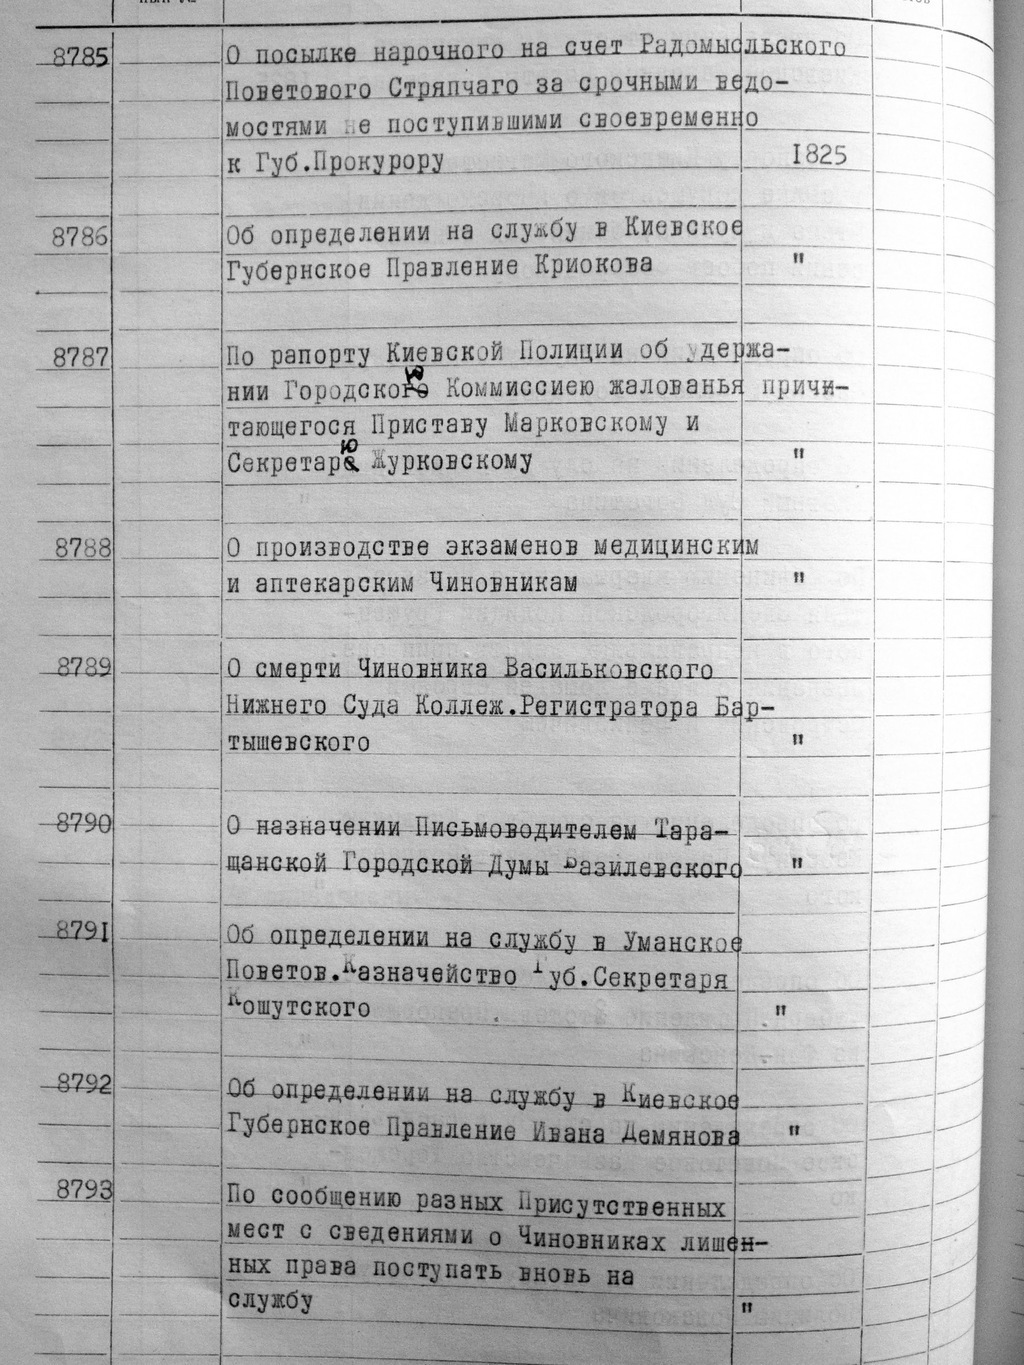 8785 О посылке нарочного на счет Радомысльского
Поветового Стряпчаго за срочными ведо-
мостями не поступившими своевременно
к Губ.Прокурору 1825
8786 Об определении на службу в Киевское
Губернское Правление Криокова "
8787 По рапорту Киевской Полиции об удержа-
нии Городскою Коммиссиею жалованья причи-
тающегося Приставу Марковскому и
Секретарю Журковскому "
8788 О производстве экзаменов медицинским
и аптекарским Чиновникам "
8789 О смерти Чиновника Васильковского
Нижнего Суда Коллеж.Регистратора Бар-
тышевского "
8790 О назначении Письмоводителем Тара-
щанской Городской Думы Базилевского "
8791 Об определении на службу в Уманское
Поветов.Казначейство Губ.Секретаря
Кошутского "
8792 Об определении на службу в Киевское
Губернское Правление Ивана Демянова "
8793 По сообщению разных Присутственных
мест с сведениями о Чиновниках лишен-
ных права поступать вновь на
службу "